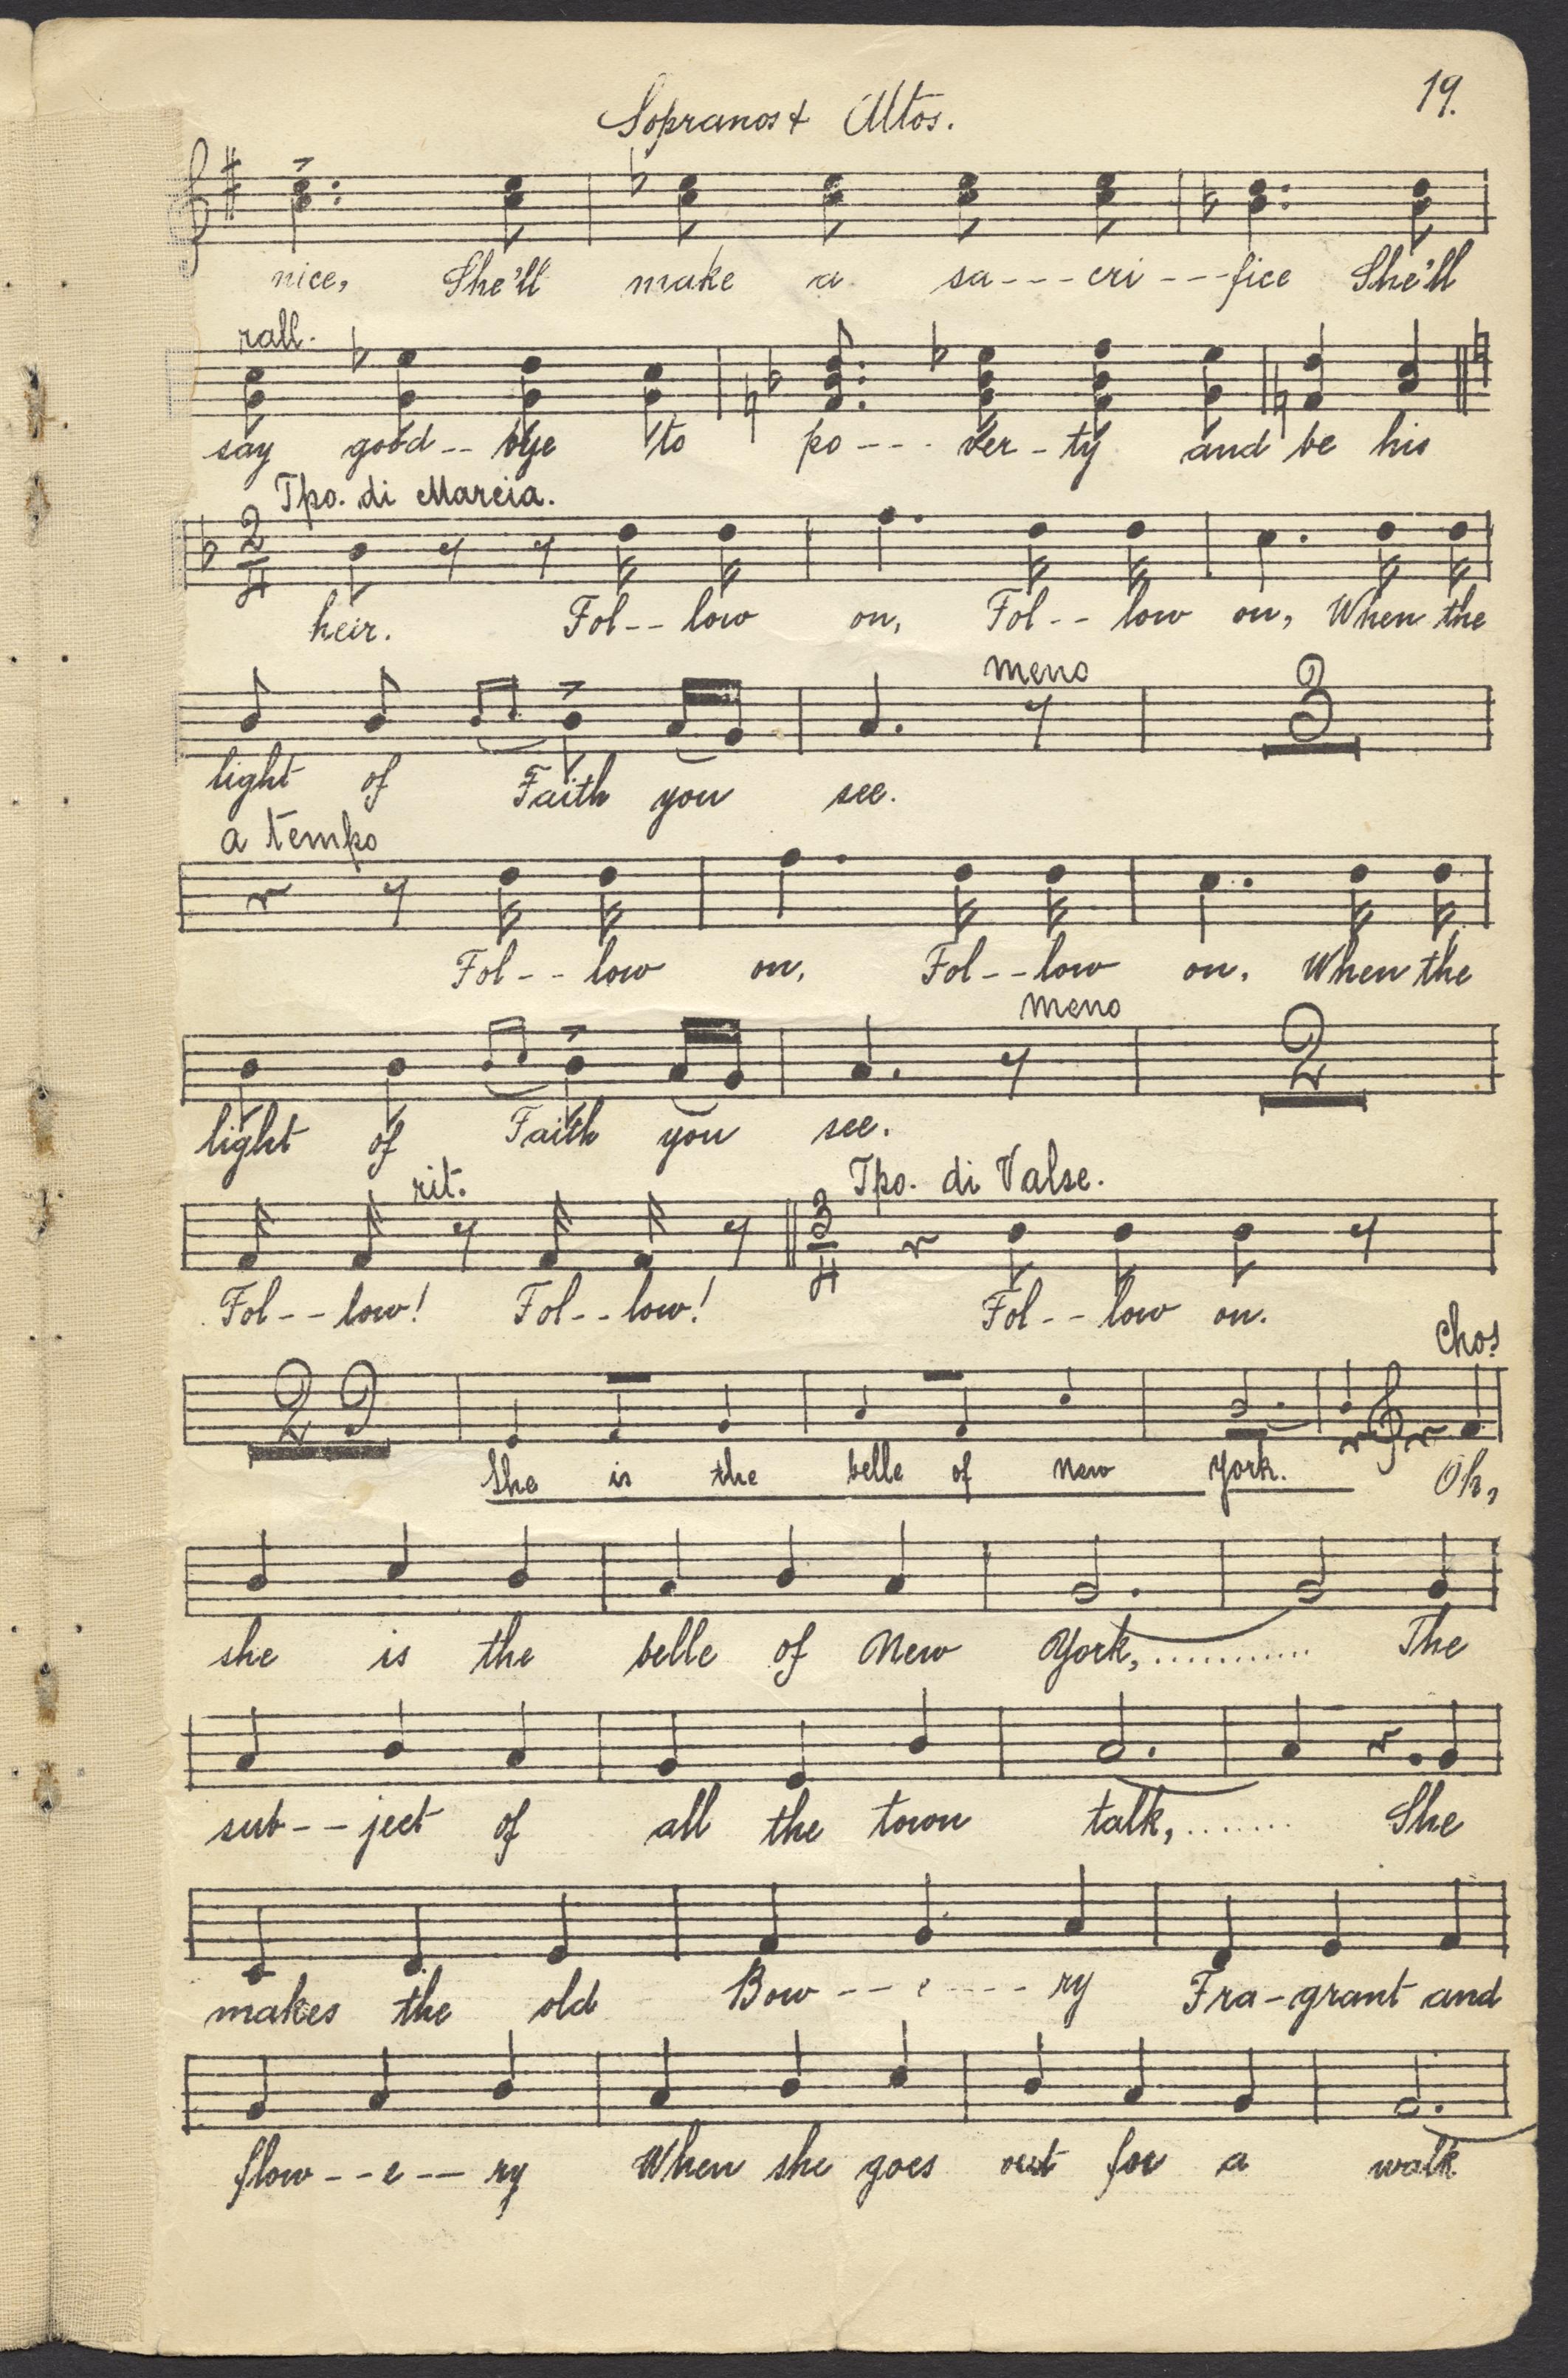 19.
Sopranos & Altos.
nice, She'll make a sa---cri---fice She'll
rall.
say good--bye to po---ver-ty and be his
Tpo. di Marcia.
2 4
heir. Fol--low on, Fol--low on, When the
meno
3
light of Faith you see.
a tempo
Fol--low on, Fol--low on, When the
meno
2
light of Faith you see.
rit. Tpo. di Valse.
3 4
Fol--low! Fol--low! Fol--low on.
Chos
29
She is the belle of New York. Oh,
she is the belle of New York,............ The
sub--ject of all the town talk,....... She
makes the old Bow---e----ry Fra-grant and
flow--e--ry When she goes out for a walk